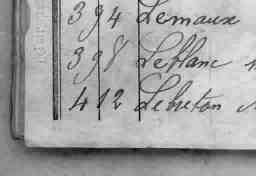 394 Lemaux
398 Leblanc
412 Lebreton